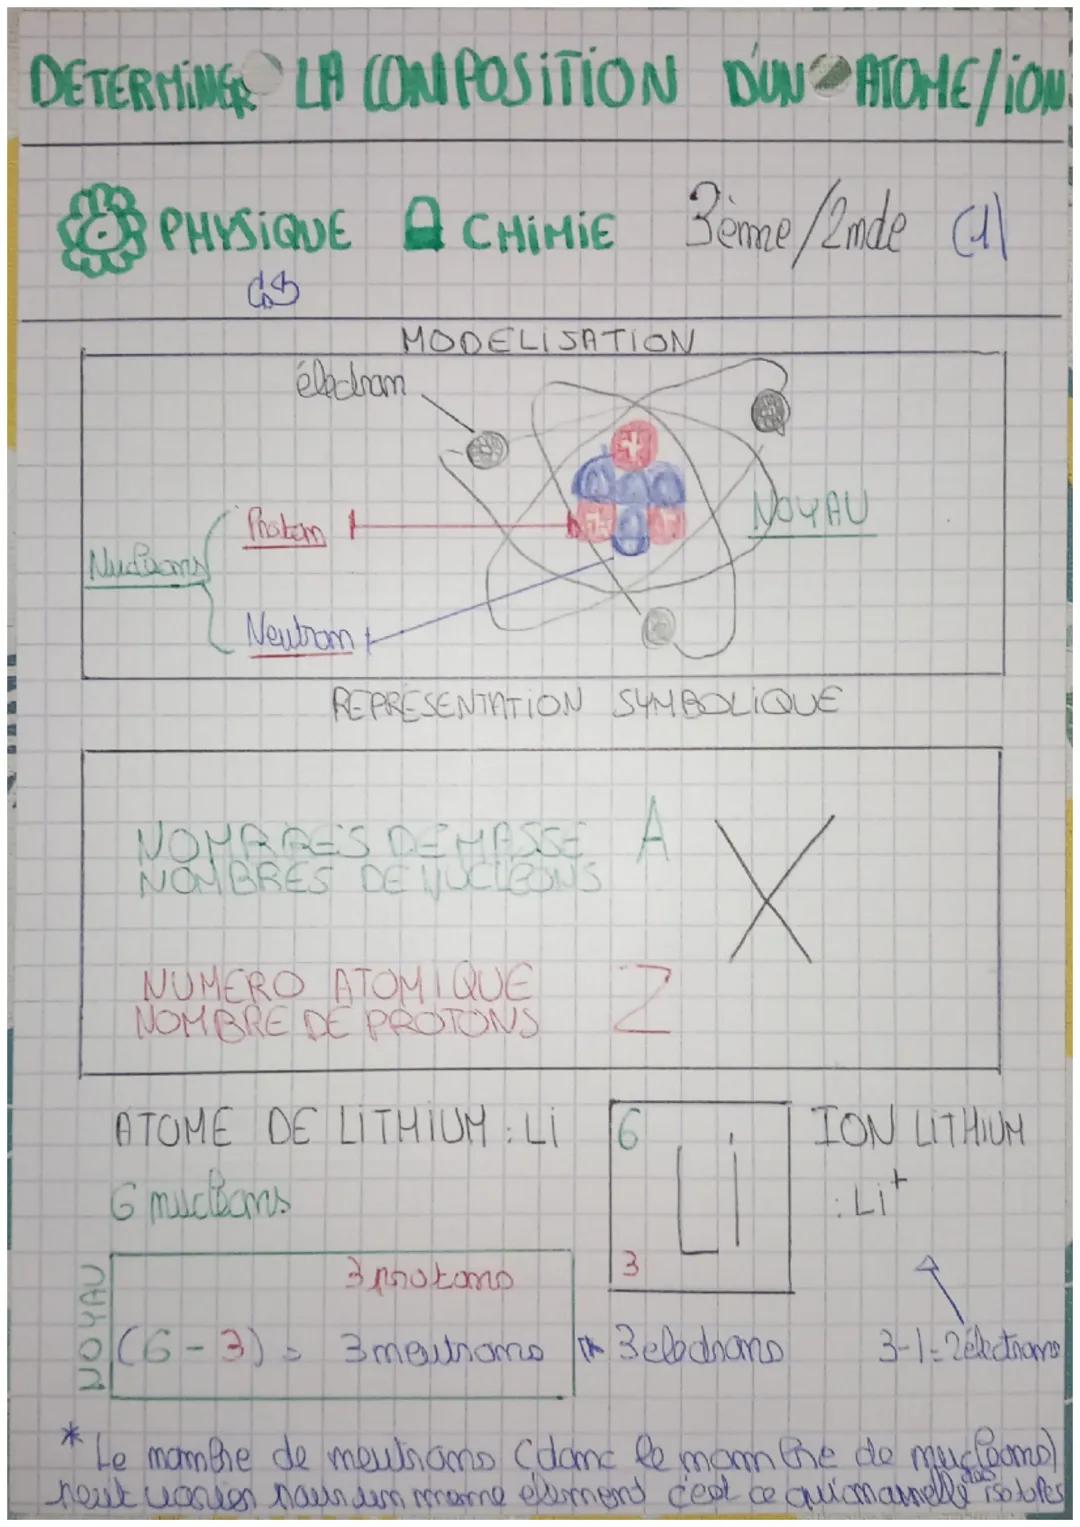 DETERMINER LA COMPOSITION D'UN ATOME/iON
PHYSiQUE CHiMiE 3ème/2nde (1)
MODELISATION
électron
Proton
NOYAU
Nucléons
Neutron
REPRESENTATION SYMBOLIQUE
NOMBRES DE MASSE A
NOMBRES DE NUCLEONS
X
NUMERO ATOMIQUE Z
NOMBRE DE PROTONS
ATOME DE LiTHiUM : Li
6 Li 3
ION LiTHIUM
: Li⁺
6 nucléons
NOYAU
3 protons
(6-3) = 3 neutrons * 3 électrons
3-1=2électrons
* Le nombre de neutrons (donc le nombre de nucléons)
peut varier pour un meme élement c'est ce qui on appelle des isotopes